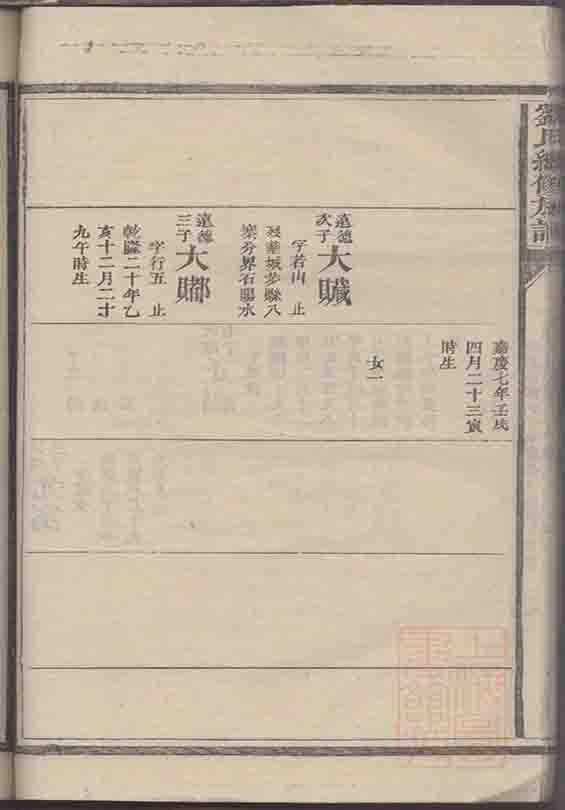 劉氏總修族譜
遠德
次子
大贓
字若山 止
寨分界石腸水
遠德
三子
大䣓
字行五 止
乾隆二十年乙
亥十二月二十
九午時生
嘉慶七年壬戌
四月二十三寅
時生
女一
上海圖
書館藏